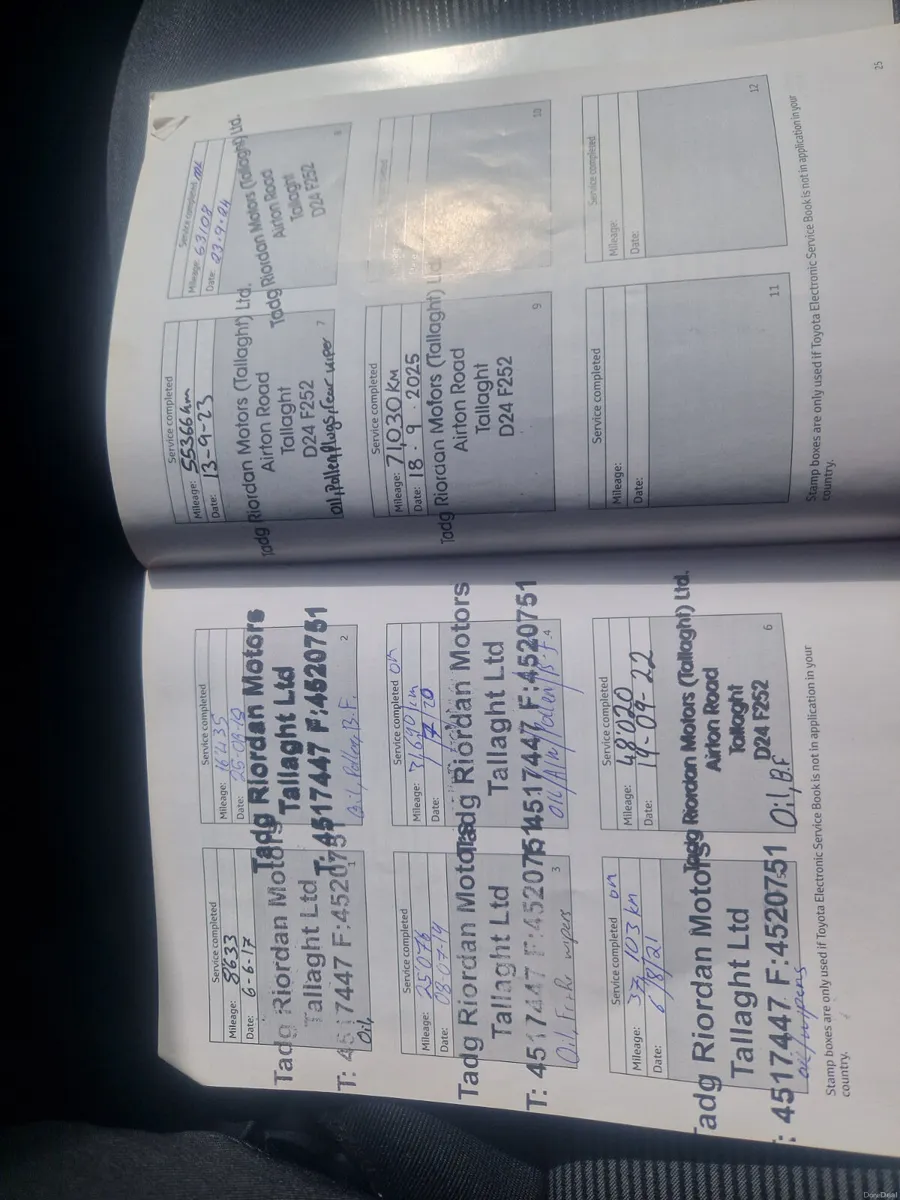 Service completed
Mileage: 8633
Date: 6-6-17
Tadg Riordan Motors
Tallaght Ltd
T: 4517447 F:4520751
Oil,
1
Service completed
Mileage: 16435
Date:
Tadg Riordan Motors
Tallaght Ltd
T: 4517447 F:4520751
Oil, Pollen, B.F.
2
Service completed
Mileage: 25076
Date: 08-07-19
Tadg Riordan Motors
Tallaght Ltd
T: 4517447 F:4520751
3
Oil, wipers
Service completed on
Mileage: 31690 km
Date: /7/20
Tadg Riordan Motors
Tallaght Ltd
4517447 F:4520751
4
Service completed on
Mileage: 37,103 km
Date: 6/8/21
Tadg Riordan Motors
Tallaght Ltd
: 4517447 F:4520751
oil/wipers
Service completed
Mileage: 48'020
Date: 14-09-22
Tadg Riordan Motors (Tallaght) Ltd.
Airton Road
Tallaght
D24 F252
Oil, B.F
6
Stamp boxes are only used if Toyota Electronic Service Book is not in application in your
country.
Service completed
Mileage: 55366 km
Date: 13-9-23
Tadg Riordan Motors (Tallaght) Ltd.
Airton Road
Tallaght
D24 F252
7
oil, Pollen, plugs, rear wiper
Service completed
Mileage: 63108
Date: 23-9-24
Tadg Riordan Motors (Tallaght) Ltd.
Airton Road
Tallaght
D24 F252
8
Service completed
Mileage: 71,030 KM
Date: 18 . 9 . 2025
Tadg Riordan Motors (Tallaght) Ltd.
Airton Road
Tallaght
D24 F252
9
10
Service completed
Mileage:
Date:
11
Service completed
Mileage:
Date:
12
Stamp boxes are only used if Toyota Electronic Service Book is not in application in your
country.
25
DoneDeal